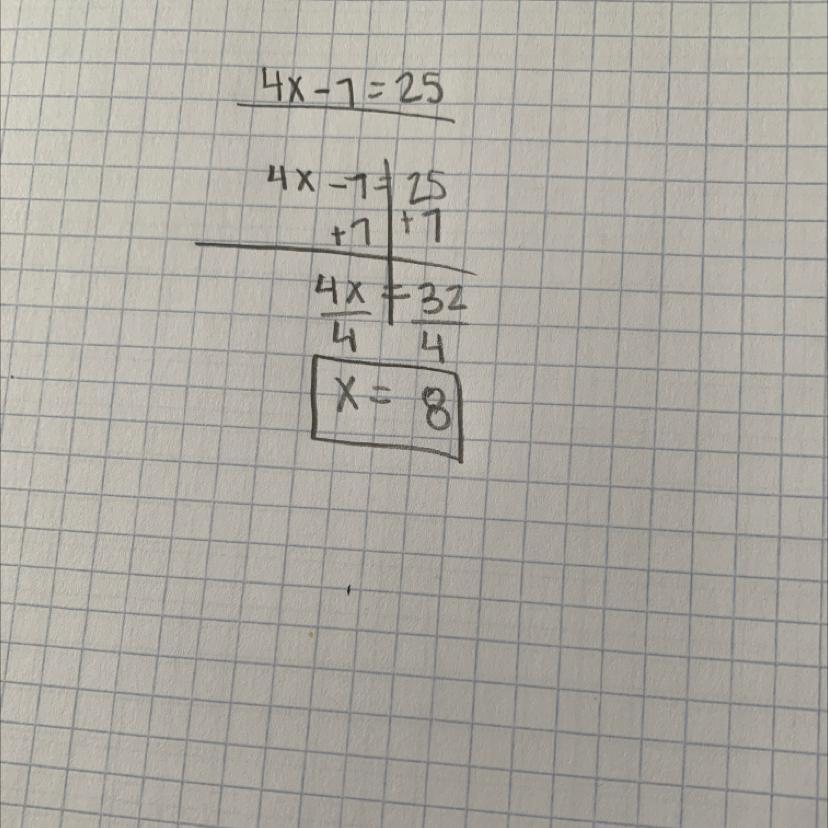 4x-7=25
4x-7=25
+7 +7
4x=32
4 4
x= 8